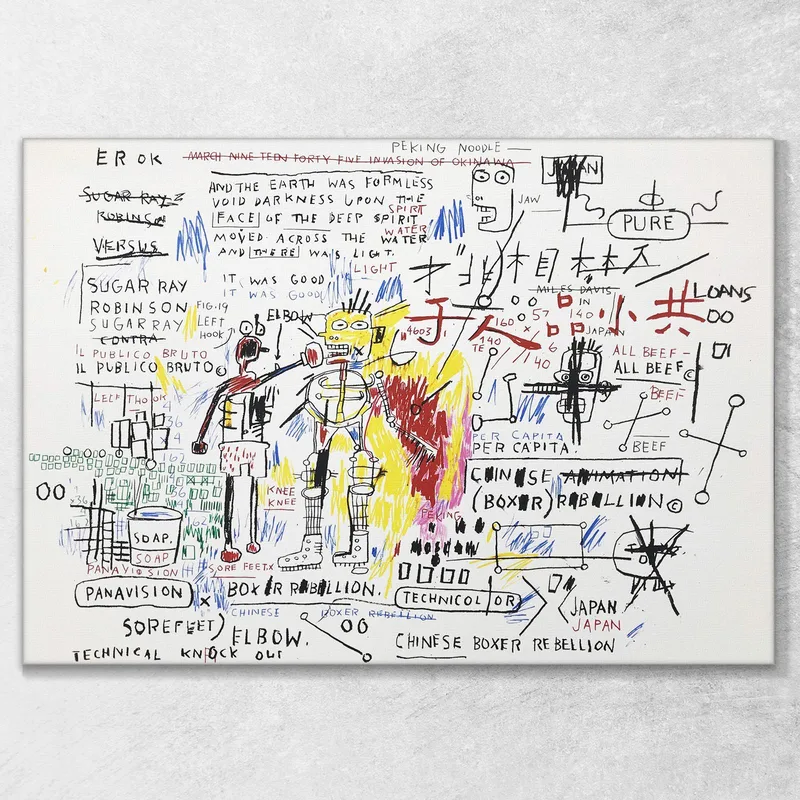 PEKING NOODLE
EROK
MARCH NINE TEEN FORTY FIVE INVASION OF OKINAWA
JAPAN
SUGAR RAY
ROBINSON
VERSUS.
AND THE EARTH WAS FORMLESS
VOID DARKNESS UPON THE
SPIRIT
FACE OF THE DEEP SPIRIT
WATER
MOVED ACROSS THE WATER
AND THERE WAS LIGHT.
LIGHT
IT WAS GOOD
IT WAS GOOD
JAW
PURE
SUGAR RAY
ROBINSON
SUGAR RAY
CONTRA
FIG.19
LEFT
HOOK
IL PUBLICO BRUTO
IL PUBLICO BRUTO©
ELBOW
MILES DAVIS
IN
JAPAN
LOANS
4603
160
57
140
140
140
TE
6
人品小共
ALL BEEF-
ALL BEEF©
BEEF
BEEF
PER CAPITA
PER CAPITA.
CHINESE ANIMATION
(BOXER) REBELLION©
KNEE
KNEE
PEKING
MOSCOW
SOAP.
SOAP
PANAVISION
SORE FEET.X
PANAVISION
X
BOXER REBELLION.
CHINESE BOXER REBELLION
TECHNICOLOR
JAPAN
JAPAN
SOREFEET)
ELBOW.
CHINESE BOXER REBELLION
TECHNICAL KNOCK OUT